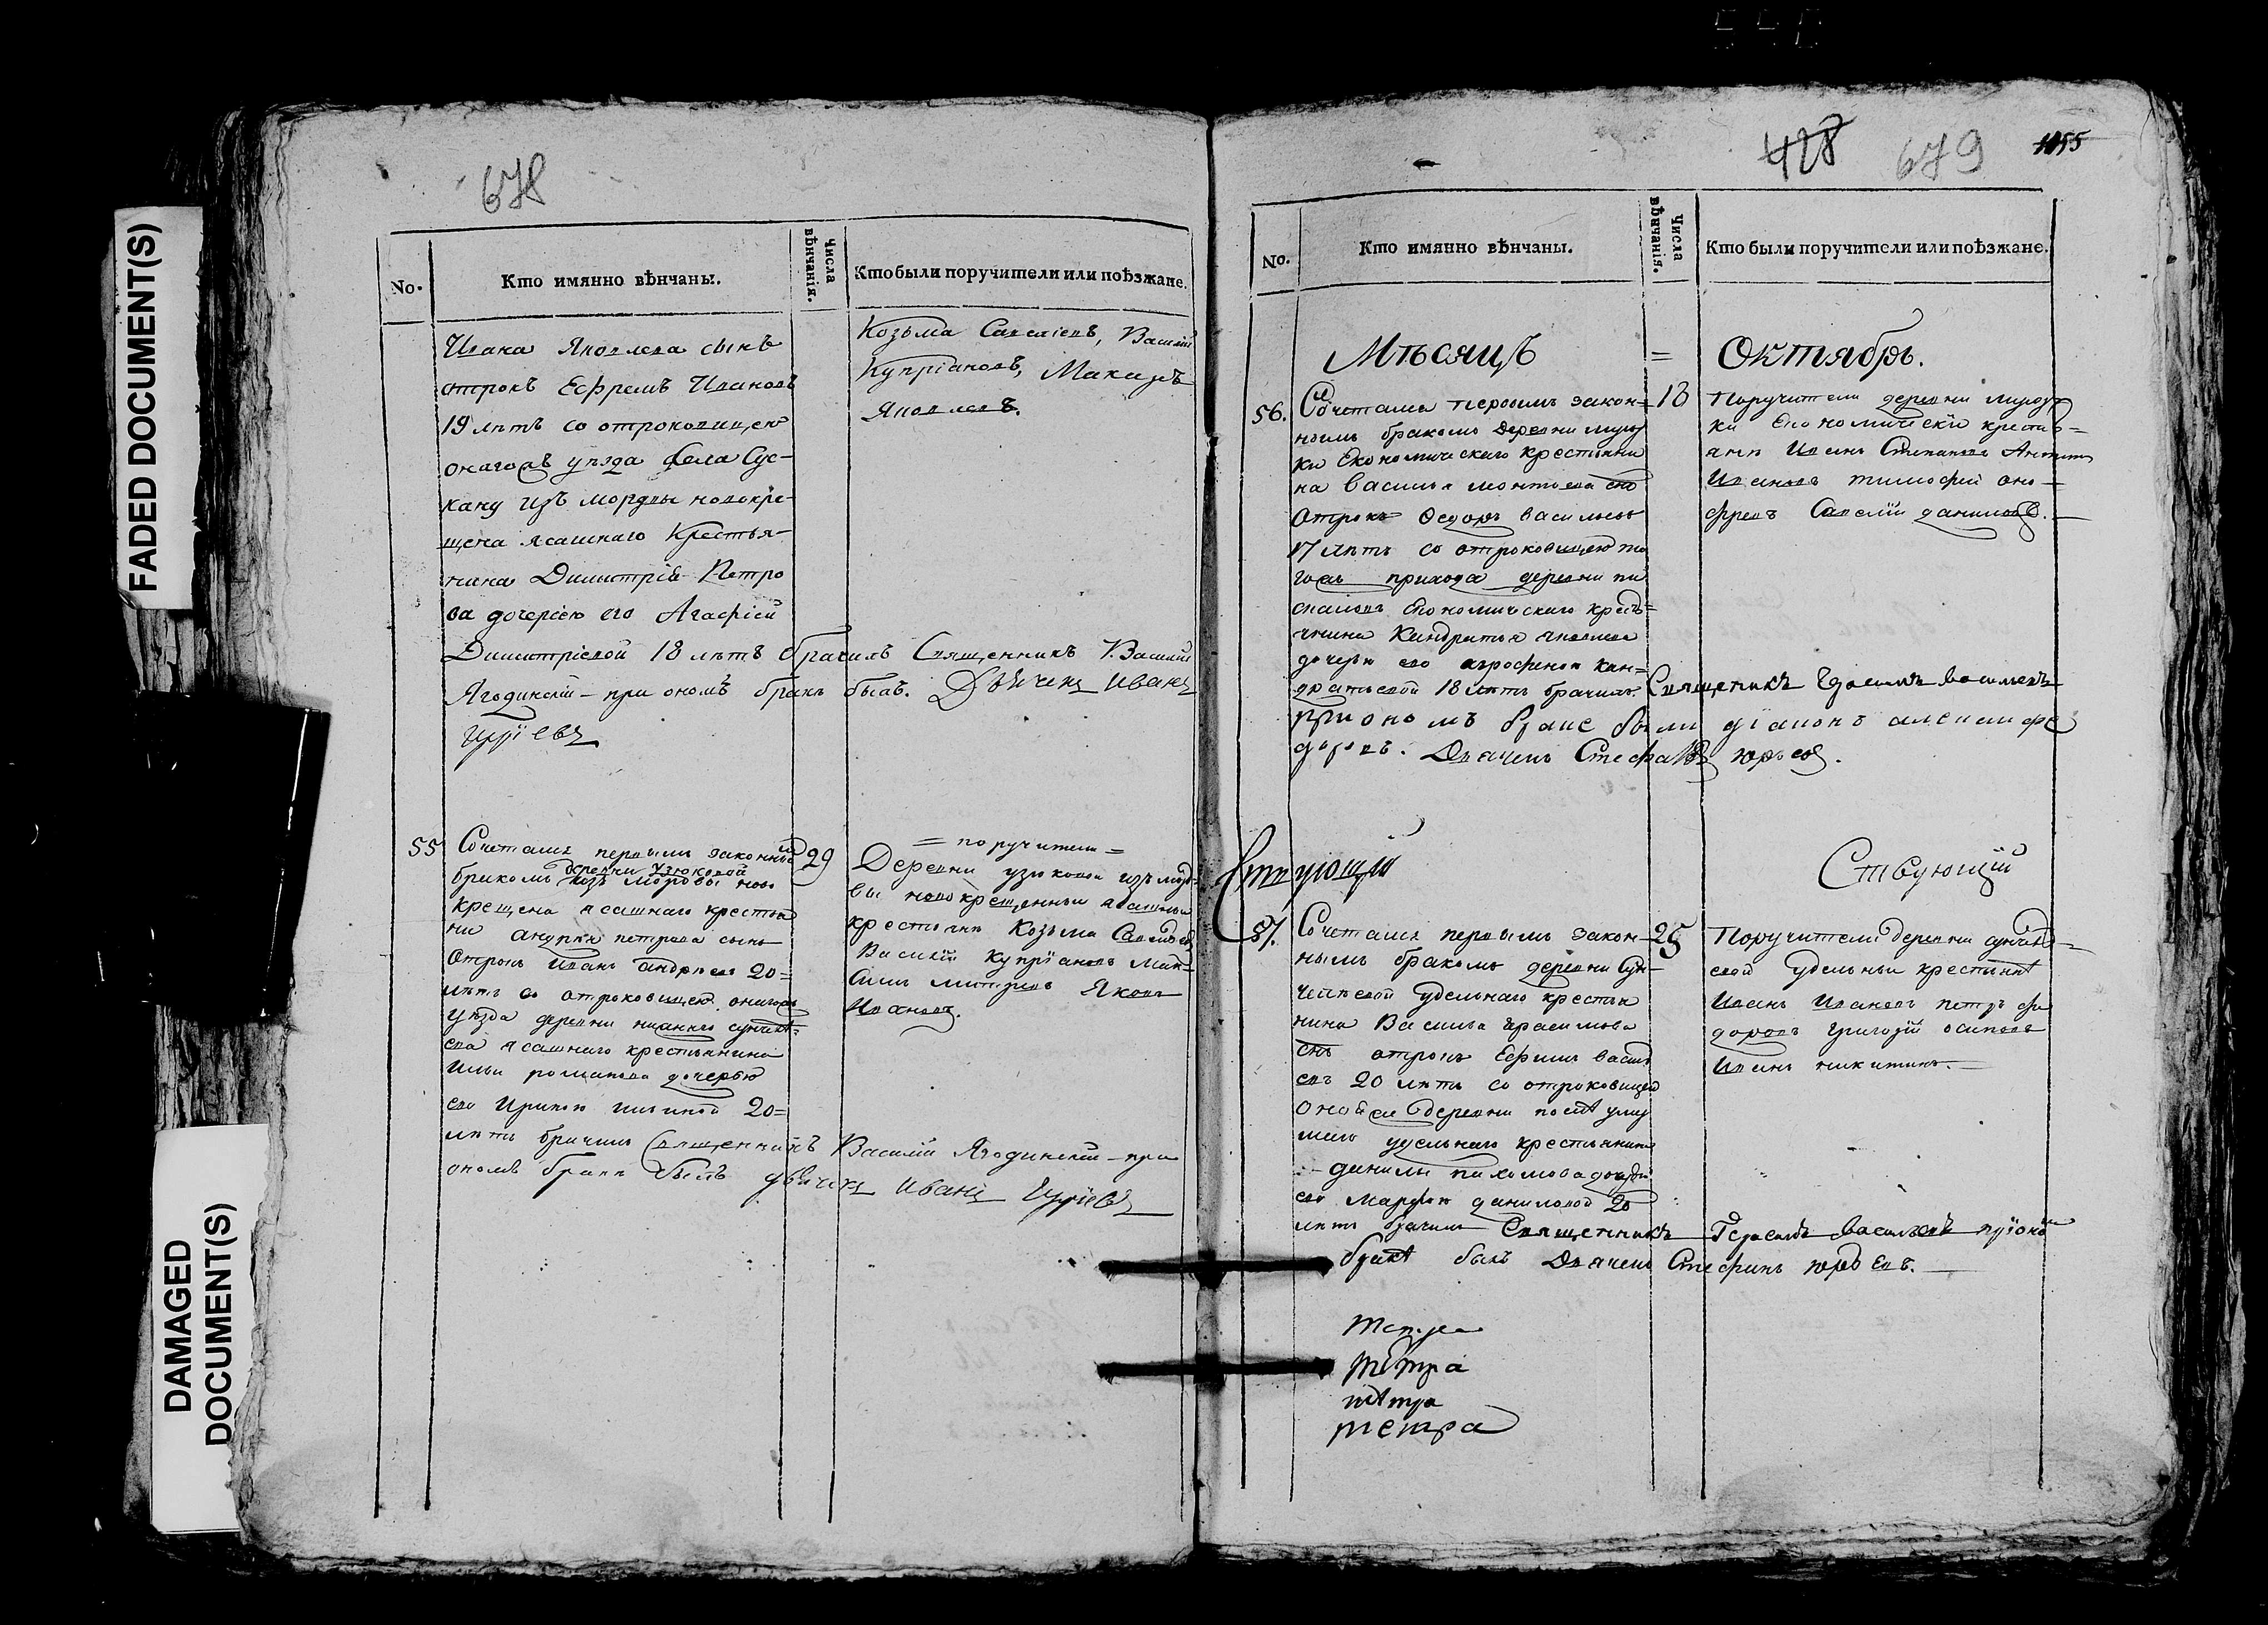 FADED DOCUMENT(S)
DAMAGED
DOCUMENT(S)
678
No.
Кто имянно вѣнчаны.
Числа
вѣнчанія.
Кто были поручители или поѣзжане.
Ивана Яковлева сынъ
отрокъ Ефремъ Ивановъ
19 лѣтъ со отроковицею
онагожъ уѣзда села Сус-
кану изъ мордвы новокре-
щена ясашнаго Крестья-
нина Димитрія Петро
ва дочерію его Агафіей
Димитріевой 18 лѣтъ брачилъ Священникъ Василий
Ягодинскій – при ономъ бракѣ былъ. Дьячекъ Иванъ
Козьма Савеліевъ, Василій
Купріановъ, Макаръ
Яковлевъ.
55
Сочетался первымъ законны
деревни Узюковой
бракомъ изъ мордвы ново
крещена ясашнаго крестья
петрова сынъ
Отрокъ Иванъ андреевъ 20=
лѣтъ со отроковицею онагожъ
уѣзда деревни нижняго
ева ясашнаго крестьянина
Ильи романова дочерью
его Ириною ильиной 20=
лѣтъ брачилъ Священникъ Василій Ягодинскій – при
ономъ бракѣ былъ дьячекъ Иванъ
29
= поручители =
Деревни узюковой изъ морд
вы новокрещенныи ясашныи
крестьяне Козьма Савельевъ
Василій Купріановъ Мак=
Яковъ
Ивановъ.
428 679 1055
No.
Кто имянно вѣнчаны.
Числа
вѣнчанія.
Кто были поручители или поѣзжане.
Мѣсяцъ = Октябрь.
56.
Сочетался первымъ закон=
нымъ бракомъ деревни
ки Економическаго крестьяни
на Василья леонтьева сно
отрокъ Федоръ васильевъ
17 лѣтъ со отроковицею то
гожъ прихода деревни пи
скаловъ Економическаго кресть=
янина Кандратья яковлева
дочерью его агрофеной кан=
дратьевой 18 лѣтъ брачилъ Священникъ Герасимъ васильевъ
при ономъ браке были діаконъ алексей фе
доровъ. Дьячекъ Стефанъ юрьевъ.
18
Поручители деревни
ки Економическій крестья=
яне Иванъ Степановъ Антипъ
Ивановъ тимофей оно-
фреевъ Савелій даниловъ.
Ствующій
57.
Сочетался первымъ закон-
нымъ бракомъ деревни Сун-
чейлевой Удельнаго крестья
нина Василья Герасимова
снъ отрокъ Ефимъ василь
евъ 20 лѣтъ со отроковицею
оной же деревни после умер
шаго удельнаго крестьянина
данилы пахомова дочерью
его Марфою даниловой 20
лѣтъ брачилъ Священникъ Герасимъ васильевъ при оно
браке былъ Дьячекъ Стефанъ юрьевъ.
25
Поручители деревни
евой Удельныи крестьяне
Иванъ Ивановъ петръ фе
доровъ григорій осиповъ
Иванъ никитинъ.
петра
петра
петра